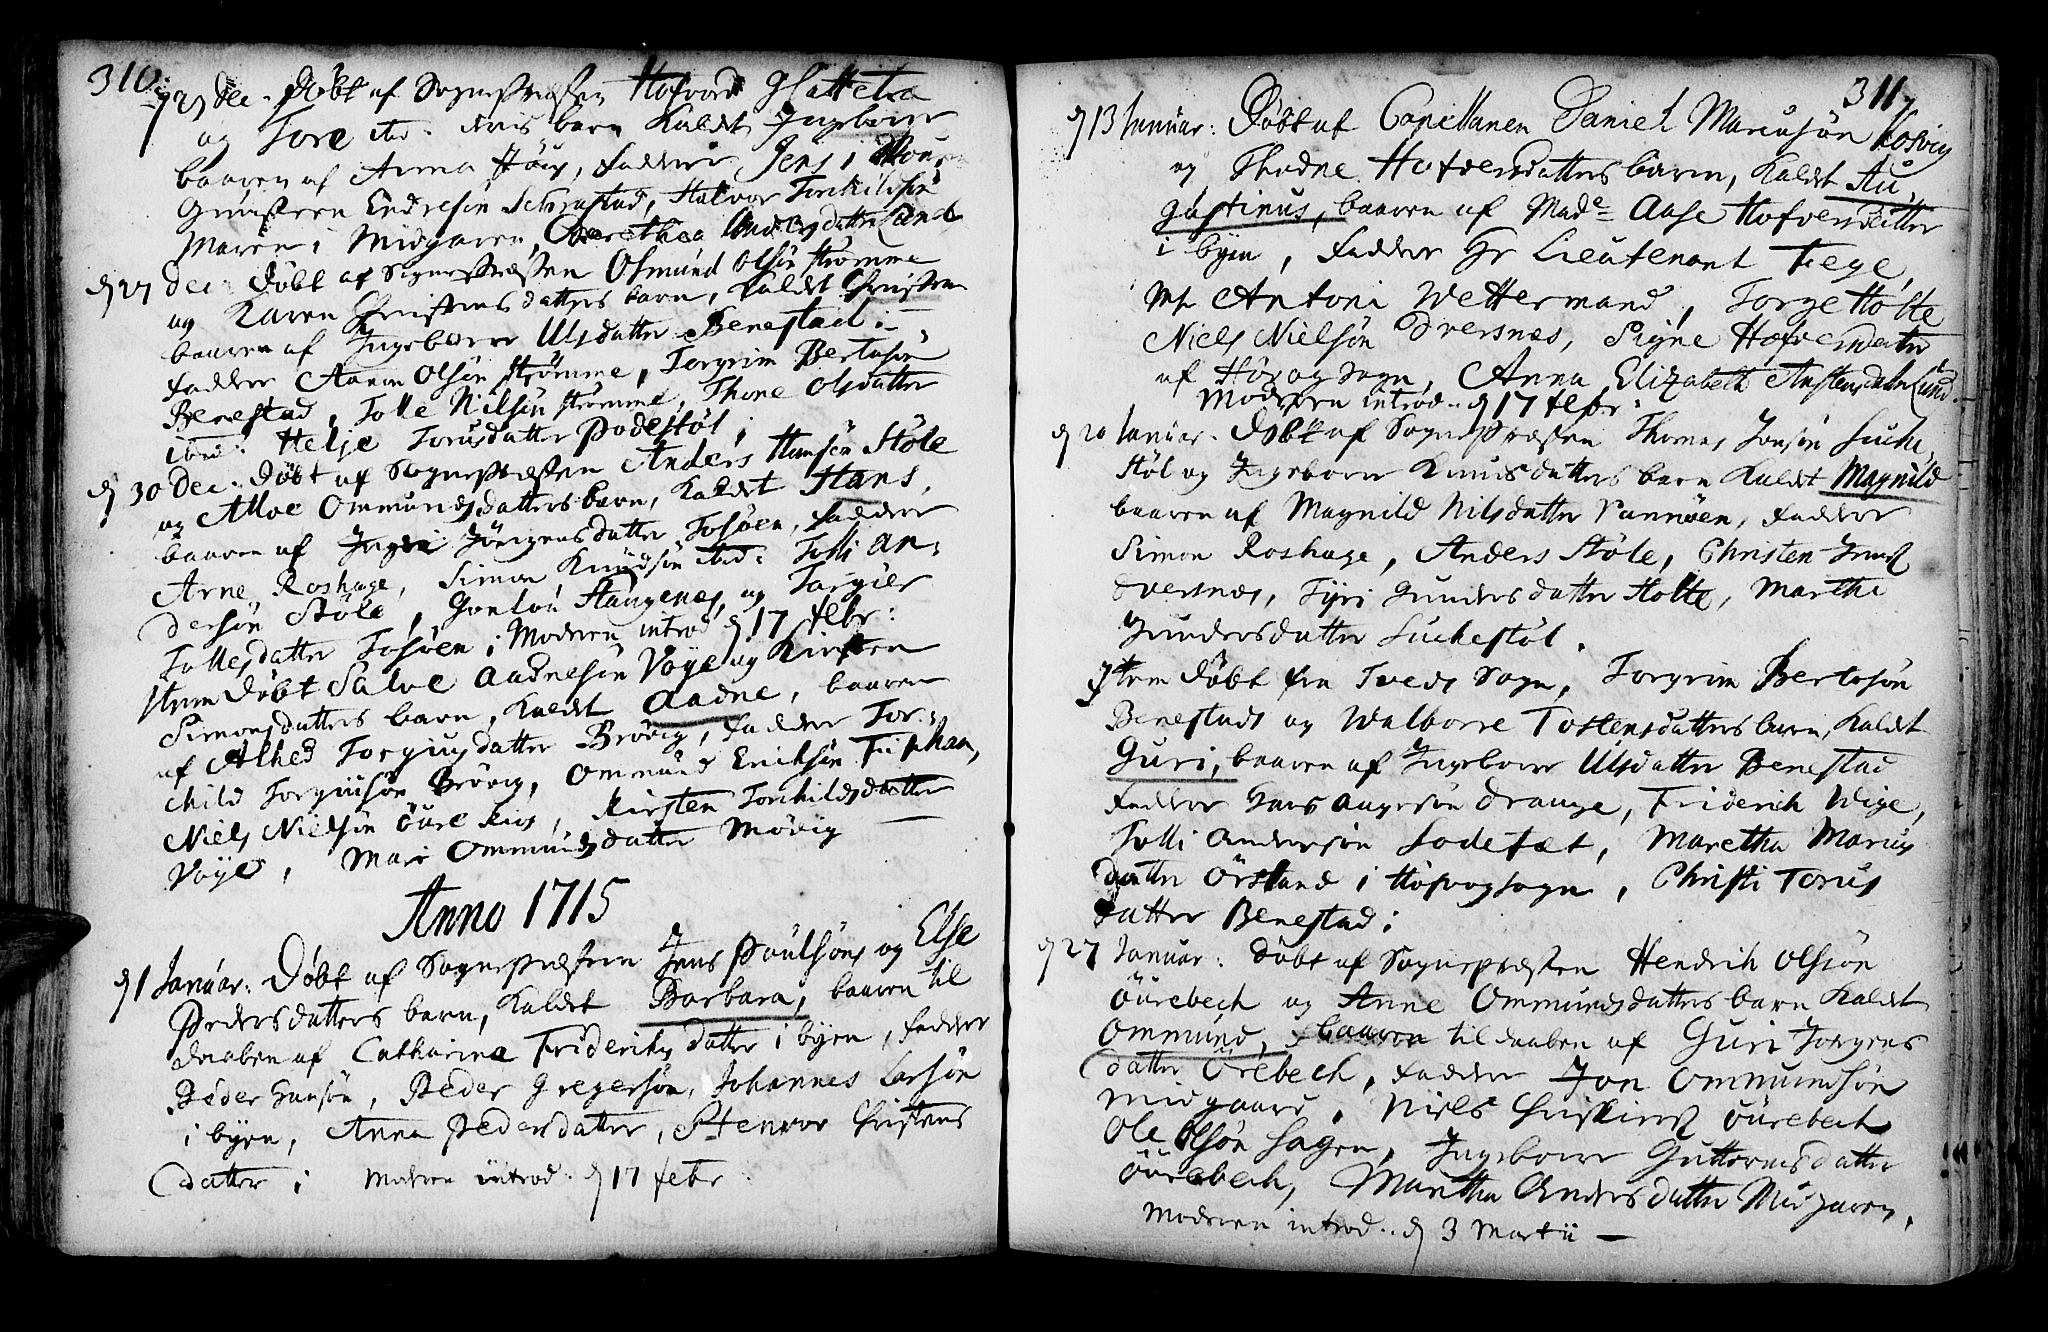 310.
d 27 Dec. Døbt af Sognepræsten Hofvord Glattetra
og Tore ibid. deris barn Kaldet Ingeborre
baaren af Anna Høuy, faddere Jens
Endresön Schrastad, Halvor Torchildsøn
Maren i Midgaren, Dorethea Andersdatter Lande
d 27 Dec. Døbt af Sognepræsten Osmund Olsøn Strømme
og Karen Christensdatters barn, Kaldet Christen
baaren af Ingeborre Ulsdatter Benestad :
faddere Aanon Olsøn Strømme, Torgrim Bertosøn
Benestad, Tolle Nilsøn Strømme, Thone Olsdatter
ibid. Helje Torusdatter Podestøl ;
d 30 Dec. Døbt af Sognepræsten Anders Hansøn Støle
og Alloe Ommundsdatters barn, Kaldet Hans,
baaren af Jørgensdatter Tosøen, faddere
Arne Roshage, Simon Knudsøn ibid: Tolli An:
dersøn Støle, Gonlou Stangenes, og Torgier
Tollesdatter Tosøen ; Moderen introd d 17 febr:
Item Døbt Salve Aadnesøn Voye og Kirsten
Simonsdatters barn, Kaldet Aadne, baaren
af Alhed Torgiusdatter Brøvig, faddere Tor:
child Torgiusøn Brøvig, Ommund Eriksøn
Niels Nielsøn Øure Riis, Kirsten Torchildsdatter
Voye, Mari Ommundsdatter Møvig
Anno 1715
d 1 Januar: Døbt af Sognepræsten Jens Poulsøns og Else
Pedersdatters barn, Kaldet Barbara, baaren til
daaben af Catharina Frideriksdatter i byen, faddere
Peder Hansøn, Peder Gregersøn, Johannes Larsøn
i byen, Anna Pedersdatter, Stenvor Christens
datter ; Moderen introd. d 17 febr.
311
d 13 Januar: Døbt af Capellanen Daniel Mariusøn Kosvig
og Thadne Hofversdatters barn, Kaldet Au
gustinus, baaren af Made Aase Hofversdatter
i byen, faddere Hr Lieutenant Fege,
Mr Antoni Wettermand, Torge Holte
Niels Nielsøn Dversnes, Signe Hofversdatter
af Høvog Sogn, Anna Elizabeth Anstensdatter Lund.
Moderen introd. d 17 febr:
d 20 Januar. Døbt af Sognepræsten Thomas Jonsøn Suche
støl og Ingeborre Knudsdatters barn Kaldet Magnild
baaren af Magnild Nilsdatter Rannøen, faddere
Simon Roshage, Anders Støle, Christen Jens
Dversnes, Tyri Gundersdatter Holte, Marthe
Gundersdatter Suchestøl.
Item Døbt fra Tveds Sogn, Torgrim Bertosøn
Benestads og Walborre Tostensdatters barn, Kaldet
Guri, baaren af Ingeborre Ulsdatter Benestad
faddere Hans Aagesøn Drange, Friderich Wige,
Tolli Andersøn Lodefæt, Maretha Marius
datter Ørsland i Høfvogsogn, Christi Torus
datter Benestad ;
d 27 Januar: Døbt af Sognepræsten Hendrich Olssøn
Øürebech og Anne Ommundsdatters barn Kaldet
Ommund, baaren til daaben af Guri Jørgens
datter Ørebech, faddere Jon Ommundsøn
Midgaard, Niels Øürebech
Ole Olsøn Hagen, Ingeborre Guttormsdatter
Øürebech, Maretha Andersdatter Midgaren,
Moderen introd. d 3 Martii —